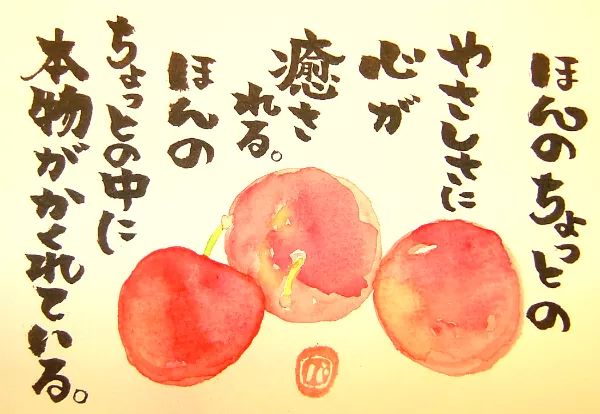 ほんのちょっとの
やさしさに
心が
癒さ
れる。
ほんの
ちょっとの中に
本物がかくれている。